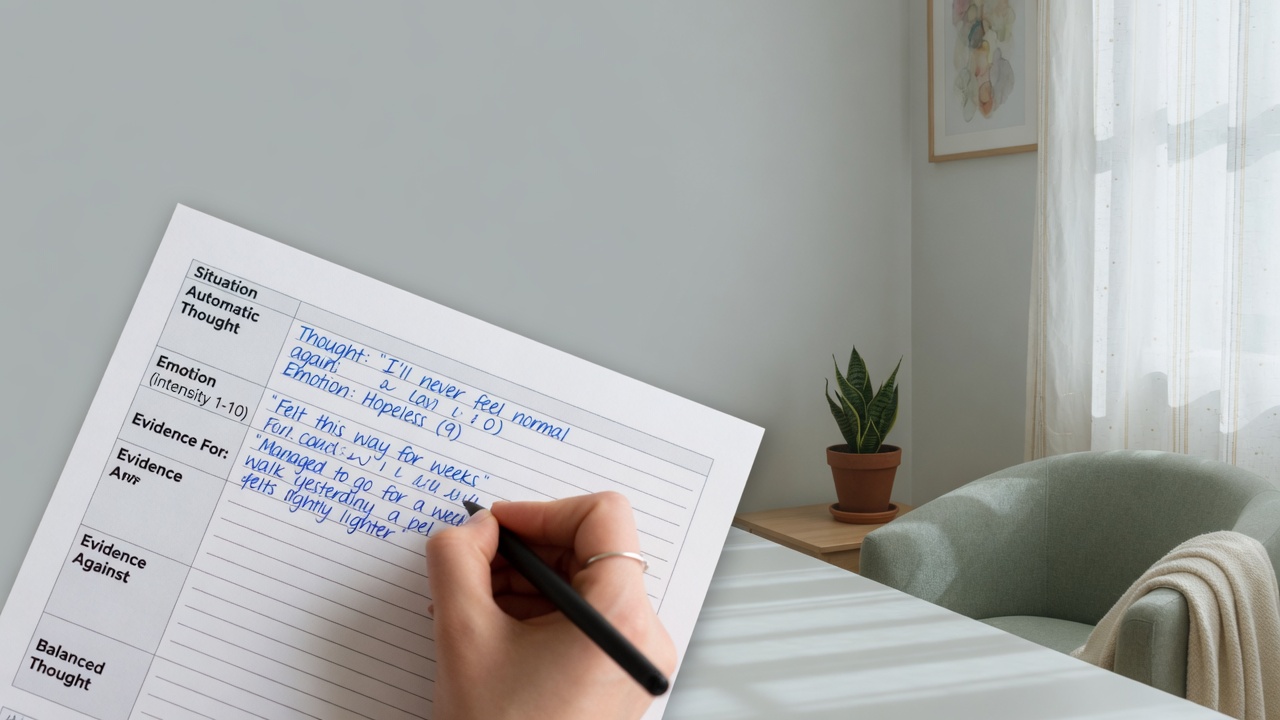 Situation
Automatic
Thought
Thought: "I'll never feel normal
again: a
Emotion
(intensity 1-10)
Emotion: Hopeless (9)
Evidence For:
"Felt this way for weeks"
Evidence
"Managed to go for a
walk yesterday, a
felts lighter"
Evidence
Against
Balanced
Thought